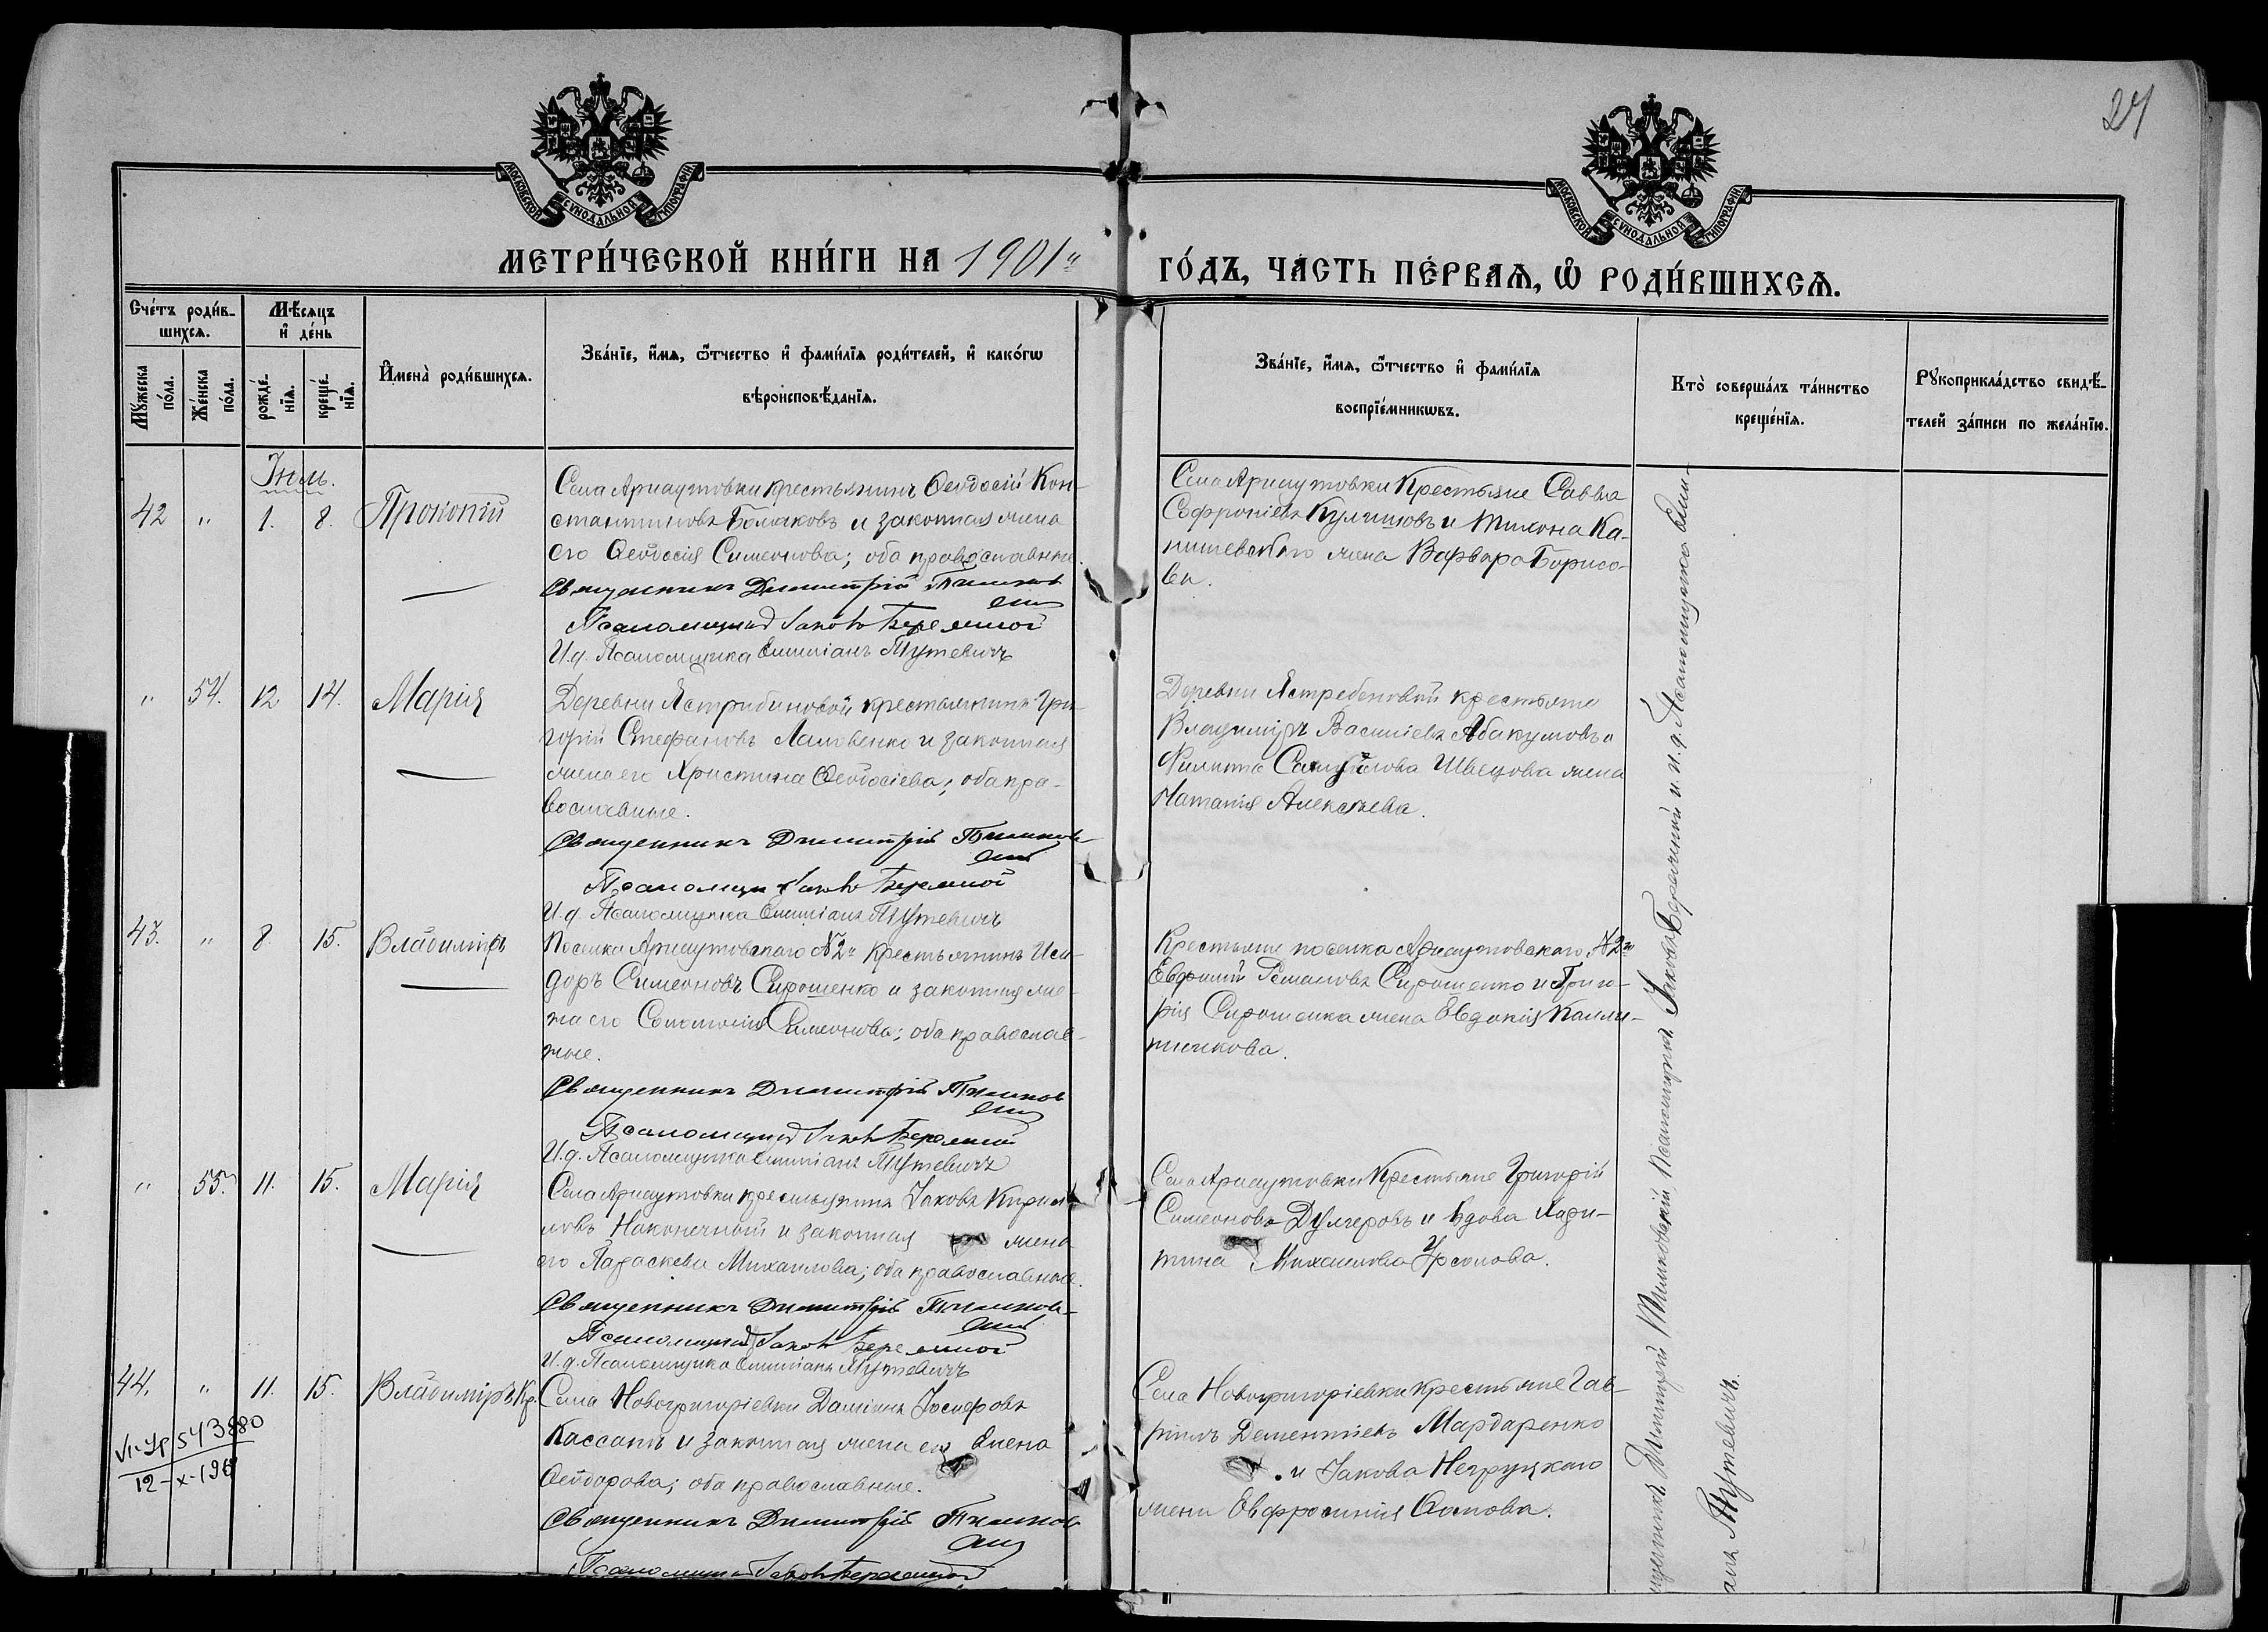 27
МОСКОВСКОЙ СѴНОДАЛЬНОЙ ТИПОГРАФІИ
МОСКОВСКОЙ СѴНОДАЛЬНОЙ ТИПОГРАФІИ
МЕТРИ́ЧЕСКОЙ КНИ́ГИ НА 1901й ГО́ДЪ, ЧА́СТЬ ПЕ́РВАѦ, Ѿ РОДИ́ВШИХСѦ.
Сче́тъ роди́в-
шихся.
Мѣ́сяцъ
и҆ де́нь
Мꙋ́жеска
по́ла.
Же́нска
по́ла.
рожде́-
нїѧ.
креще́-
нїѧ.
И҆мена̀ роди́вшихся.
Зва́нїе, и҆́мѧ, ѻ҆́тчество и҆ фами́лїѧ роди́телей, и҆ како́гѡ
вѣроисповѣ́данїѧ.
Зва́нїе, и҆́мѧ, ѻ҆́тчество и҆ фами́лїѧ
воспрїе́мникѡвъ.
Кто̀ соверша́лъ та́инство
креще́нїѧ.
Рꙋкоприкла́дство свидѣ́-
телей за́писи по жела́нїю.
Іюль.
42 " 1. 8. Прокопій
Села Арнаутовки крестьянинъ Ѳеодосій Кон-
стантиновъ Бомаковъ и законная жена
его Ѳеодосія Симеонова; оба православные.
Священникъ Димитрій Тимков-
скій
Псаломщикъ Іаковъ Бережной
И.д. Псаломщика Емиліанъ Тутевичъ
Села Арнаутовки крестьяне Савва
Софроніевъ Кулишовъ и Тихона Ка-
нишевскаго жена Варвара Борисо-
ва.
" 54. 12 14. Марія
Деревни Ястрибиновой крестьянинъ Гри-
горій Стефановъ Ламовенко и законная
жена его Христина Ѳеодосіева; оба пра-
вославные.
Священникъ Димитрій Тимков-
скій
Псаломщикъ Іаковъ Бережной
И.д. Псаломщика Емиліанъ Тутевичъ
Деревни Ястребиновой крестьяне
Владиміръ Василіевъ Абакумовъ и
Филиппа Самуйлова Швецова жена
Наталія Алексѣева.
43. " 8. 15. Владиміръ
Поселка Арнаутовскаго №2й крестьянинъ Иси-
доръ Симеоновъ Сирошенко и законная же-
на его Соломонія Симеонова; оба православ-
ные.
Священникъ Димитрій Тимков
скій
Псаломщикъ Іаковъ Бережной
И.д. Псаломщика Емиліанъ Тутевичъ
Крестьяне поселка Арнаутовскаго №2й
Евфимій Романовъ Сирошенко и Григо-
рія Сирошенка жена Евдокія Калли-
никова.
" 55. 11. 15. Марія
Села Арнаутовки крестьянинъ Іаковъ Кирил-
ловъ Наконечный и законная жена
его Параскева Михаилова; оба православные.
Священникъ Димитрій Тимков-
скій
Псаломщикъ Іаковъ Бережной
И.д. Псаломщика Емиліанъ Тутевичъ
Села Арнаутовки крестьяне Григорій
Симеоновъ Дулгеровъ и вдова Хари-
тина Михаилова Урсолова.
44. " 11. 15. Владиміръ
Кр. Села Новогригоріевки Даміанъ Іосифовъ
Кассапъ и законная жена его Елена
Ѳеодорова; оба православные.
Священникъ Димитрій Тимков
скій
Псаломщикъ Іаковъ Бережной
Села Новогригоріевки крестьяне Гав-
ріилъ Дементіевъ Мардаренко
и Іакова Негруцкаго
жена Евфросинія Ѳомова.
543880
12-X-196
щенникъ Димитрій Тимковскій, Псаломщикъ Іаковъ Бережной и и.д. Псаломщика Емилі-
анъ Тутевичъ.